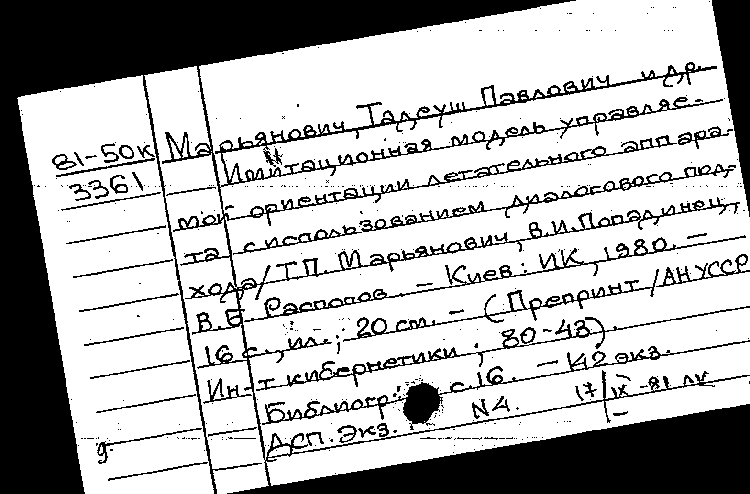 81-50к Марьянович, Тадеуш Павлович и др.
3361 Имитационная модель управляе-
мой ориентации летательного аппара-
та с использованием диалогового под-
хода / Т.П. Марьянович, В.И. Попадинец,
В.Б. Распопов. – Киев: ИК, 1980. –
16 с., ил.; 20 см. – (Препринт / АН УССР
Ин-т кибернетики; 80-43).
Библиогр.: с. 16. – 140 экз.
ДСП. Экз. N4. 17/IX-81
д